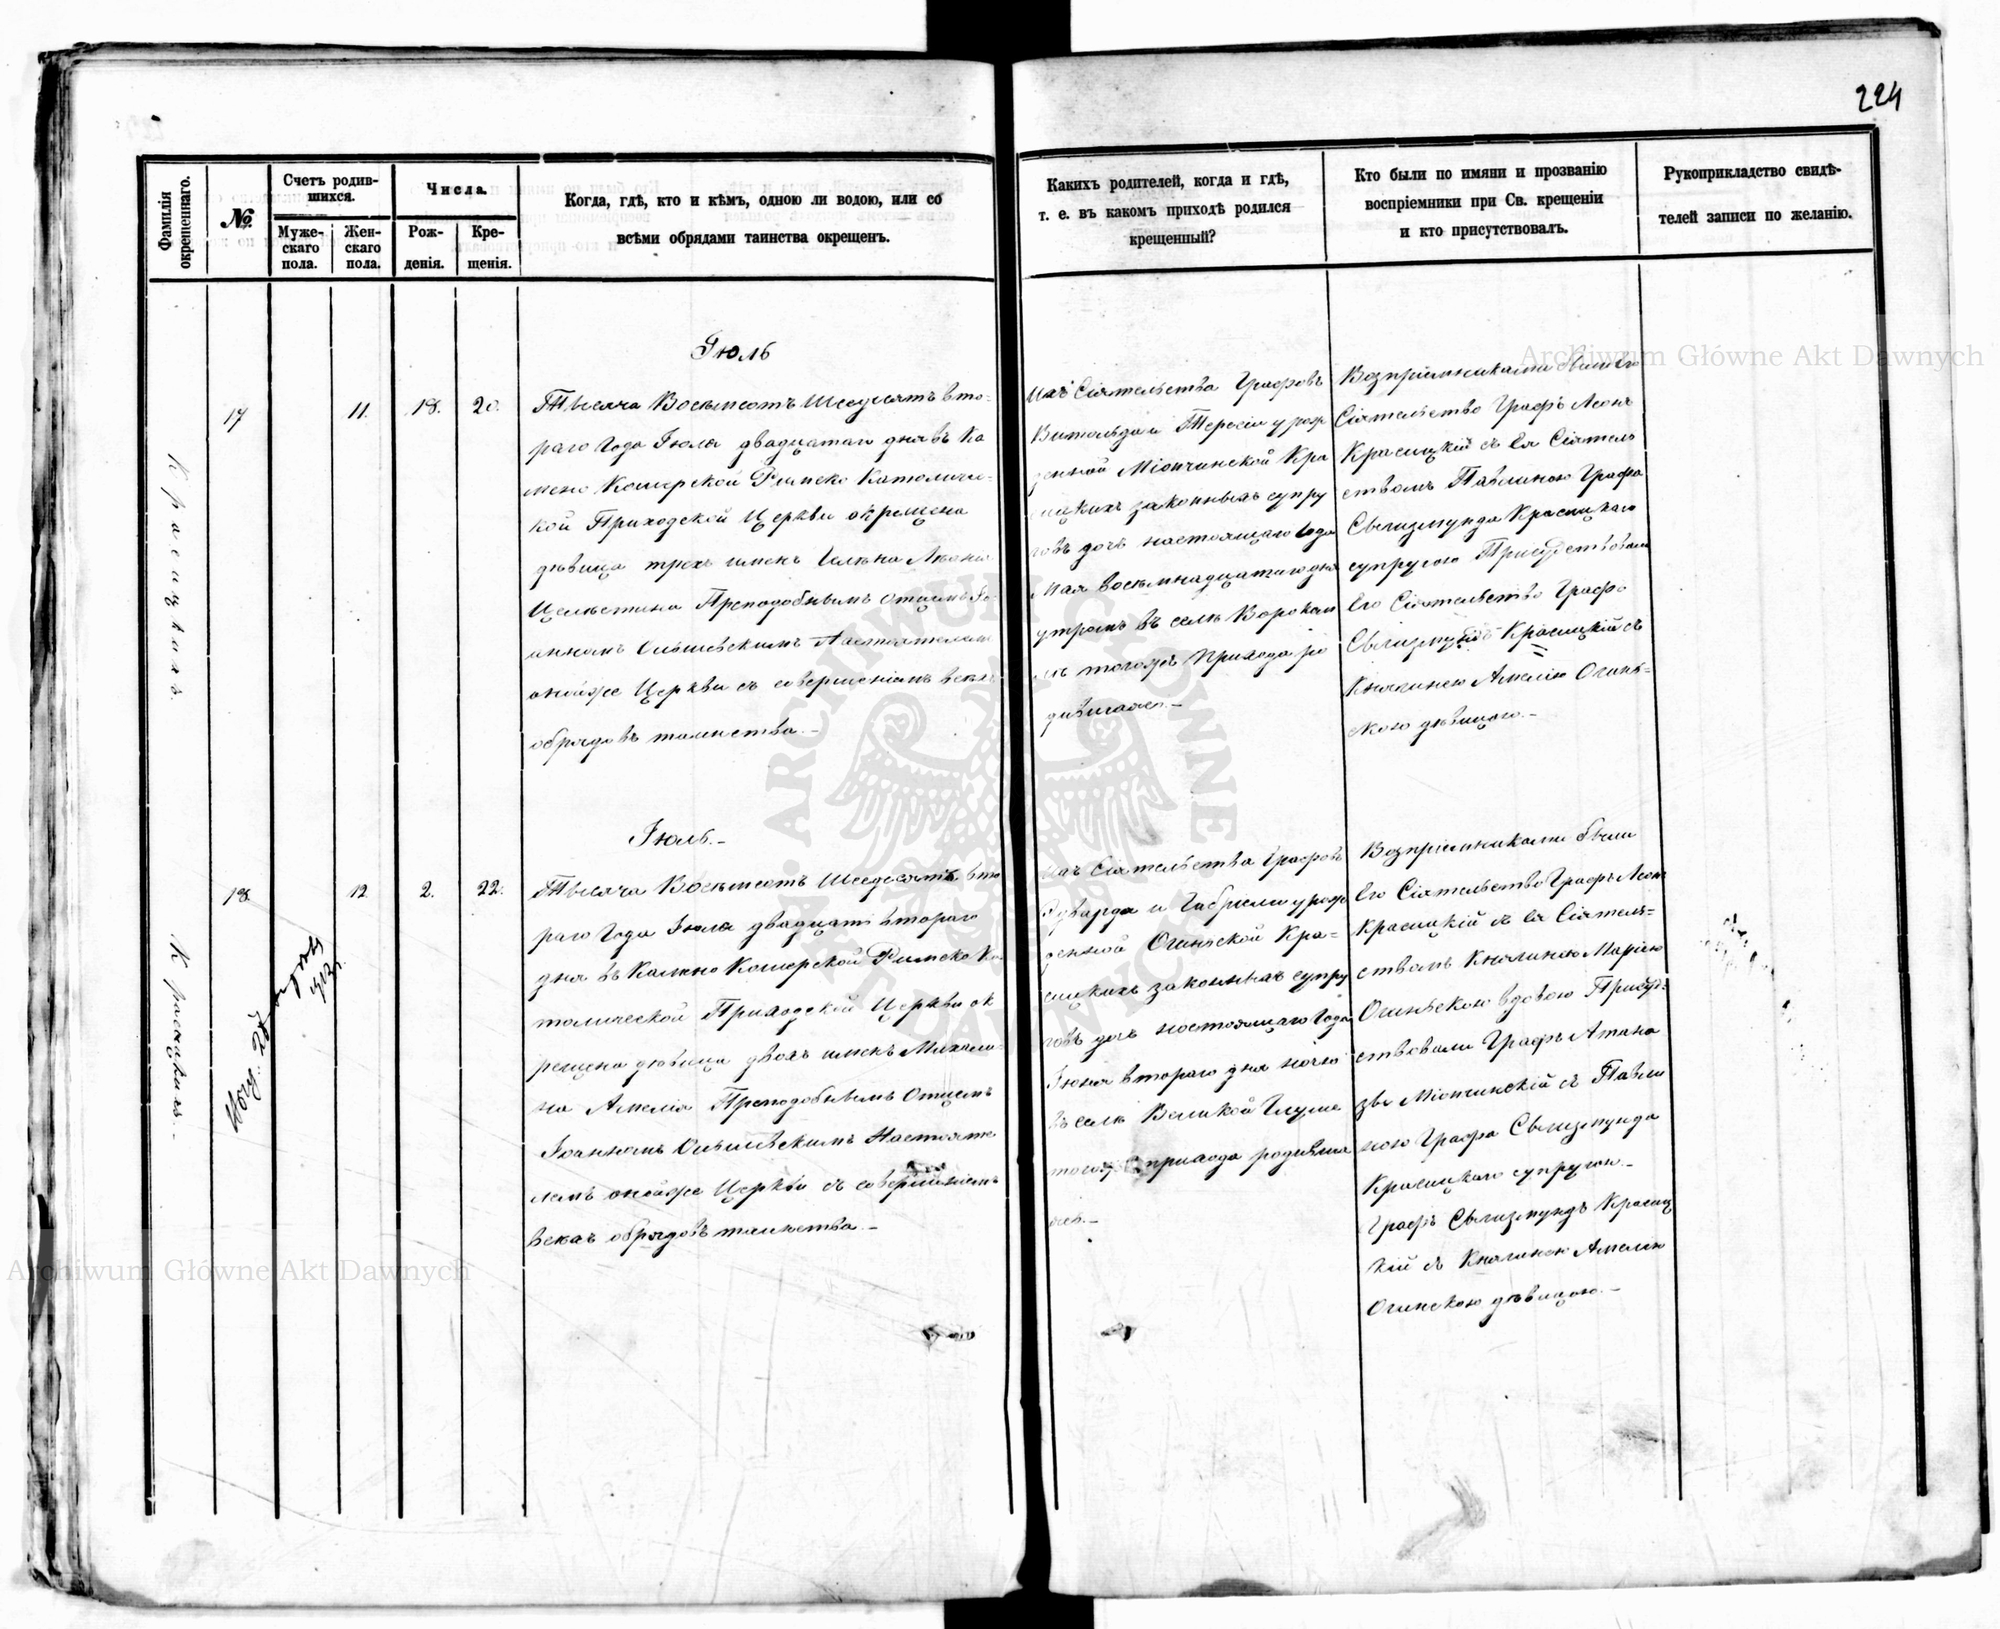 224
Фамилія
окрещеннаго.
№
Счетъ родив-
шихся.
Муже-
скаго
пола.
Жен-
скаго
пола.
Числа.
Рож-
денія.
Кре-
щенія.
Когда, гдѣ, кто и кѣмъ, одною ли водою, или со
всѣми обрядами таинства окрещенъ.
Какихъ родителей, когда и гдѣ,
т. е. въ какомъ приходѣ родился
крещенный?
Кто были по имяни и прозванію
воспріемники при Св. крещеніи
и кто присутствовалъ.
Рукоприкладство свидѣ-
телей записи по желанію.
Красицкихъ.
17
11.
18.
20.
Іюль
Тысяча Восемсотъ Шесдсятъ вто-
раго Года Іюля двадцатаго дня въ Ка
мено Коширской Римско Католичес-
кой Приходской Церкви окрещена
дѣвица трехъ именъ Леона
Целестина Преподобнымъ Отцемъ Іо-
анномъ Ольшевскимъ Настоятелемъ
онойже Церкви съ совершеніемъ всехъ
обрядовъ таинства.-
Ихъ Сіятельства Графовъ
Витольда и Терезіи урож
денной Міончинской Кра
сицкихъ законныхъ супру
говъ дочь настоящаго Года
Мая восемнадцатаго дня
утромъ въ селѣ Ворокомл
лѣ тогожъ Прихода ро
дившаяся.-
Возпріемниками были Его
Сіятельство Графъ Леонъ
Красицкій съ Ея Сіятель
ствомъ Павлиною Графа
Сыгизмунда Красицкаго
супругою Присудствовали
Его Сіятельство Графъ
Сыгизмундъ Красицкій съ
Княгинею Амелію Огинь-
скою дѣвицою.-
Красицкихъ.-
18.
12.
2.
22.
Іюль.-
Тысяча Восемсотъ Шесдесятъ вто
раго Года Іюля двадцатъ втораго
дня въ Камено Коширской Римско Ка
толической Приходской Церкви ок
рещена дѣвица двохъ именъ Михали-
на Амелія Преподобнымъ Отцемъ
Іоанномъ Ольшевскимъ Настояте
лемъ онойже Церкви съ совершеніемъ
всехъ обрядовъ таинства.-
Ихъ Сіятельства Графовъ
Эдварда и Габріели урож
денной Огинской Кра-
сицкихъ законныхъ супру
говъ дочь настоящаго Года
Іюня втораго дня ночю
въ селѣ Великой Глуше
тогожъ прихода родивша
яся.-
Возпріемниками были
Его Сіятельство Графъ Леон
Красицкій съ Ея Сіятель-
ствомъ Княгинею Марію
Огиньскою вдовою Присуд-
ствовали Графъ Атана
зы Міончинскій съ Павли
ною Графа Сыгизмунда
Красицкаго супругою.-
Графъ Сыгизмундъ Красиц
кій съ Княгинею Амелію
Огинскою дѣвицою.-
1913г.
Archiwum Główne Akt Dawnych
Archiwum Główne Akt Dawnych